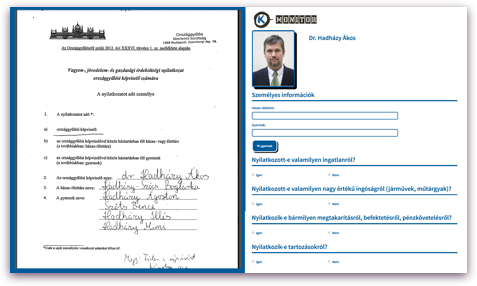 Országgyűlés
Mentelmi Bizottság
Az Országgyűlésről szóló 2012. évi XXXVI. törvény 1. sz. melléklete alapján
Vagyon-, jövedelem- és gazdasági érdekeltségi nyilatkozat
országgyűlési képviselő számára
A nyilatkozatot adó személye
1. A nyilatkozatot adó *:
a) országgyűlési képviselő
b) az országgyűlési képviselővel közös háztartásban élő házas- vagy élettárs
(a továbbiakban: házas-/élettárs)
c) az országgyűlési képviselővel közös háztartásban élő gyermek
(a továbbiakban: gyermek)
2. Az országgyűlési képviselő neve: dr Hadházy Ákos
3. A házas-/élettárs neve: Hadházy-Szűcs Boglárka
4. A gyermek neve: Hadházy Ágoston
Szűts Bence
Hadházy Illés
Hadházy Mimi
K-MONITOR
Dr. Hadházy Ákos
Személyes információk
Házas-/élettárs:
Gyermek:
Új gyermek
Nyilatkozott-e valamilyen ingatlanról?
Igen Nem
Nyilatkozott-e valamilyen nagy értékű ingóságról (járművek, műtárgyak)?
Igen Nem
Nyilatkozik-e bármilyen megtakarításról, befektetésről, pénzkövetelésről?
Igen Nem
Nyilatkozik-e tartozásokról?
Igen Nem